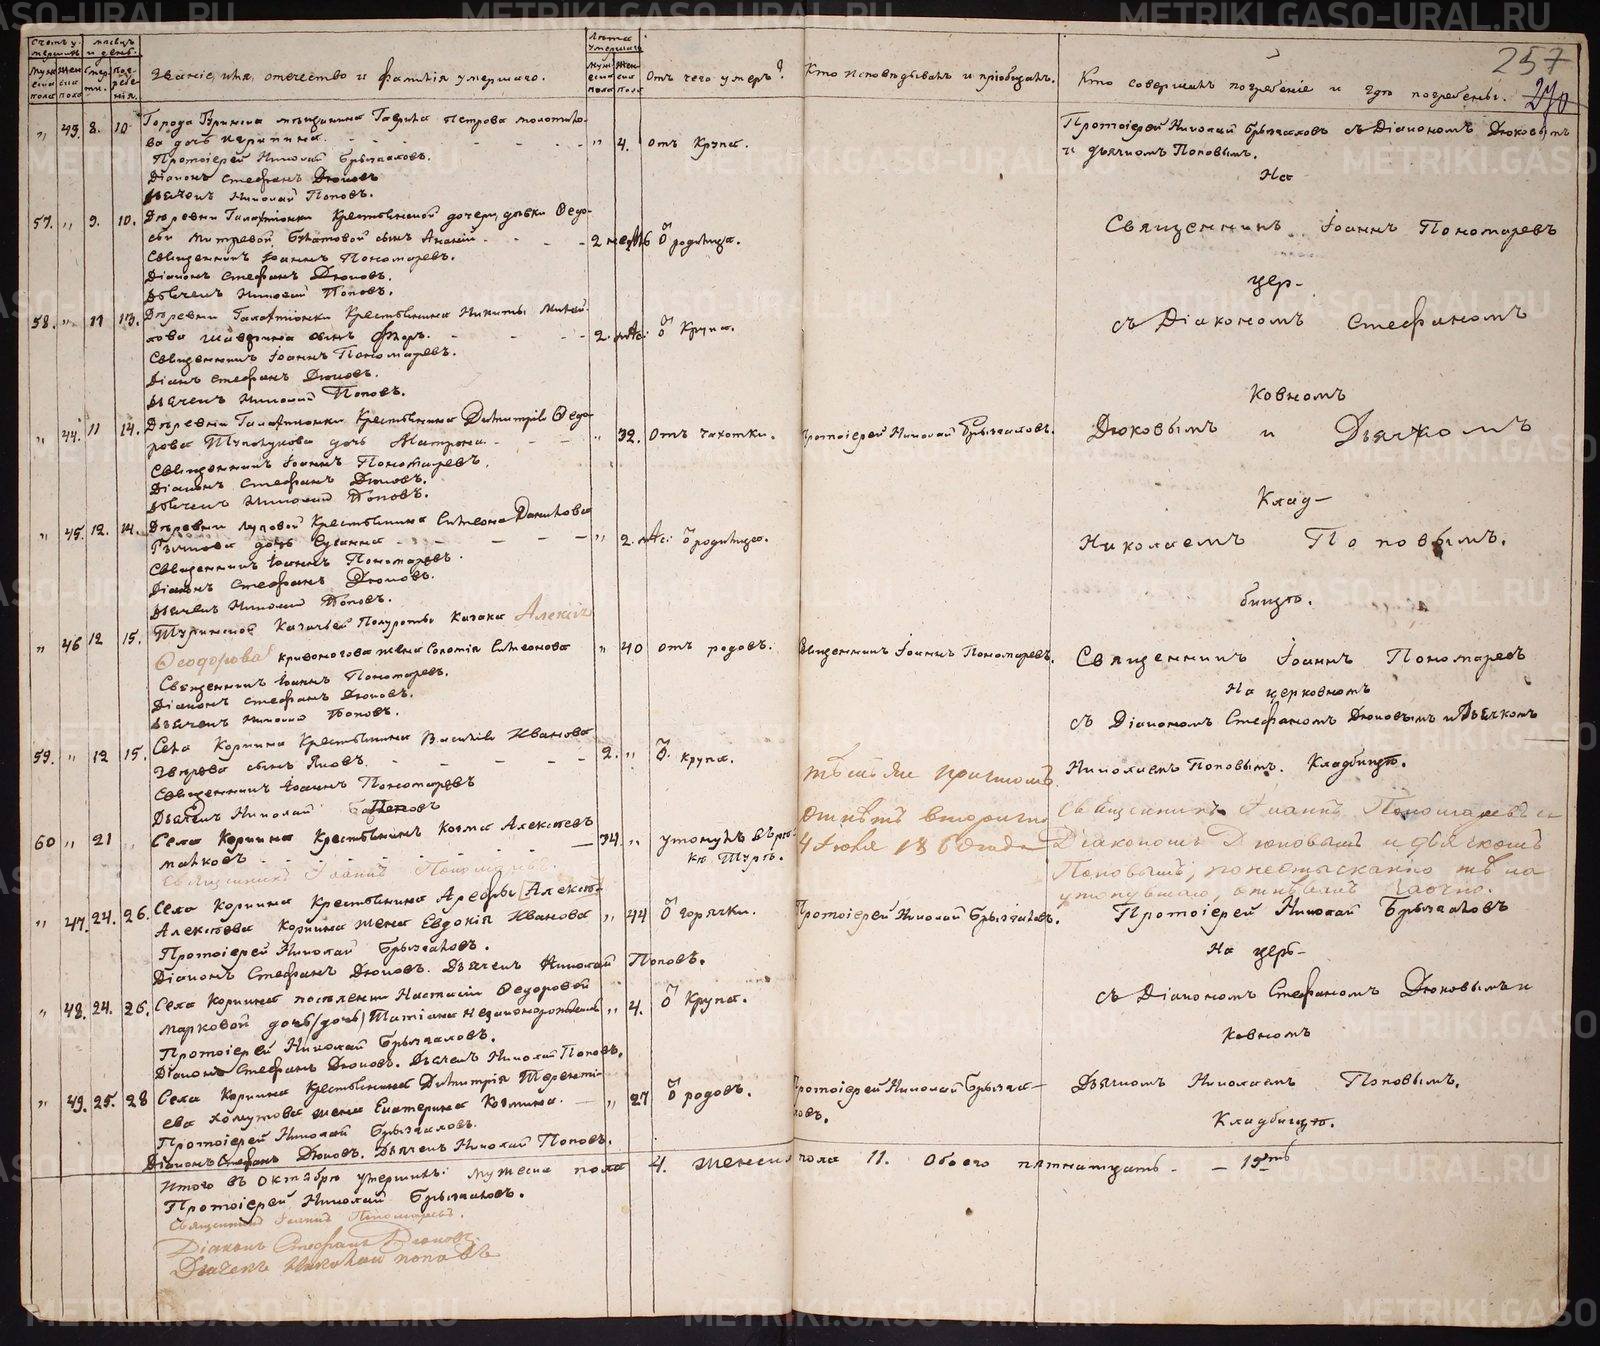 257
270
Счетъ у-
мершихъ
мѣсяцъ
и день
Лѣта
умершаго
Званіе, имя, отечество и фамилія умершаго.
Отъ чего умеръ?
Кто исповѣдывалъ и пріобщалъ.
Кто совершалъ погребеніе и гдѣ погребены.
„ 43. 8. 10 Города Туринска мѣщанина Гаврила Петрова
ва дочь „ 4. отъ Крупа.
Протоіерей Николай Брызгаловъ.
Діаконъ Стефанъ Дюковъ
Дьячекъ Николай Поповъ.
Протоіерей Николай Брызгаловъ съ Діакономъ Дюковымъ
и дьячкомъ Поповымъ.
57. „ 9. 10. Деревни Галактіонки Крестьянской дочери, дѣвки Ѳедо-
сьи сынъ Ананій 2 родимца.
Священникъ Іоаннъ Пономаревъ.
Діаконъ Стефанъ Дюковъ.
Дьячекъ Николай Поповъ.
58. „ 11 13. Деревни Галактіонки Крестьянина Никиты Михай-
лова сынъ 2. Крупа.
Священникъ Іоаннъ Пономаревъ.
Діаконъ Стефанъ Дюковъ.
Дьячекъ Николай Поповъ.
„ 44. 11 14. Деревни Галактіонки Крестьянина Димитрія Ѳедо-
рова дочь Матрона „ 32. Отъ чахотки. Протоіерей Николай Брызгаловъ.
Священникъ Іоаннъ Пономаревъ.
Діаконъ Стефанъ Дюковъ.
Дьячекъ Николай Поповъ.
„ 45. 12. 14. Деревни Крестьянина Симеона Данилова
дочь Сусанна „ 2. родимца.
Священникъ Іоаннъ Пономаревъ.
Діаконъ Стефанъ Дюковъ.
Дьячекъ Николай Поповъ.
„ 46 12 15. Туринской Казачьей Полуроты Казака Алексія
Ѳеодорова Кривоногова жена Соломія Симеонова „ 40 отъ родовъ. Священникъ Іоаннъ Пономаревъ.
Священникъ Іоаннъ Пономаревъ.
Діаконъ Стефанъ Дюковъ.
Дьячекъ Николай Поповъ.
59. „ 12 15. Села Коркина Крестьянина Василія Иванова
Звѣрева сынъ Яковъ. 2. „ крупа.
Священникъ Іоаннъ Пономаревъ
Дьячекъ Николай Поповъ
60 „ 21 „ Села Коркина Крестьянинъ Козма Алексѣевъ
34. „ утонулъ въ рѣ-
кѣ Турѣ.
Священникъ Іоаннъ Пономаревъ.
тѣмъ же причтомъ
отпѣтъ вторично
4 Іюня 1860 года
„ 47. 24. 26. Села Коркина Крестьянина Арефы Алексѣе
Алексѣева Коркина жена Евдокія Иванова „ 44 горячки. Протоіерей Николай Брызгаловъ.
Протоіерей Николай Брызгаловъ.
Діаконъ Стефанъ Дюковъ. Дьячекъ Николай Поповъ.
„ 48. 24. 26. Села Коркина Настасіи Ѳедоровой
Марковой дочь (дочь) Татіана незаконорожденная „ 4. Крупа.
Протоіерей Николай Брызгаловъ.
Діаконъ Стефанъ Дюковъ. Дьячекъ Николай Поповъ.
„ 49. 25. 28 Села Коркина Крестьянина Димитрія Теренті-
ева Хомутова жена Екатерина Козмина. „ 27 родовъ. Протоіерей Николай Брызга-
ловъ.
Протоіерей Николай Брызгаловъ.
Діаконъ Стефанъ Дюковъ. Дьячекъ Николай Поповъ.
На
Священникъ Іоаннъ Пономаревъ
цер-
съ Діакономъ Стефаномъ
ковномъ
Дюковымъ и Дьячкомъ
Клад-
Николаемъ Поповымъ.
бищѣ.
Священникъ Іоаннъ Пономаревъ
На церковномъ
съ Діакономъ Стефаномъ Дюковымъ и Дьячкомъ
Николаемъ Поповымъ. Кладбищѣ.
Священникъ Іоаннъ Пономаревъ и
Діакономъ Дюковымъ и дьячкомъ
Поповымъ, тѣла
утонувшаго, отпѣвали заочно.
Протоіерей Николай Брызгаловъ
На цер-
съ Діакономъ Стефаномъ Дюковымъ и
ковномъ
Дьячкомъ Николаемъ Поповымъ.
Кладбищѣ.
Итого въ Октябрѣ умершихъ: мужеска пола 4. женска пола 11. Обоего пятнатцать. — 15ть
Протоіерей Николай Брызгаловъ.
Священникъ Іоаннъ Пономаревъ.
Діаконъ Стефанъ Дюковъ.
Дьячекъ Николай Поповъ
METRIKI.GASO-URAL.RU